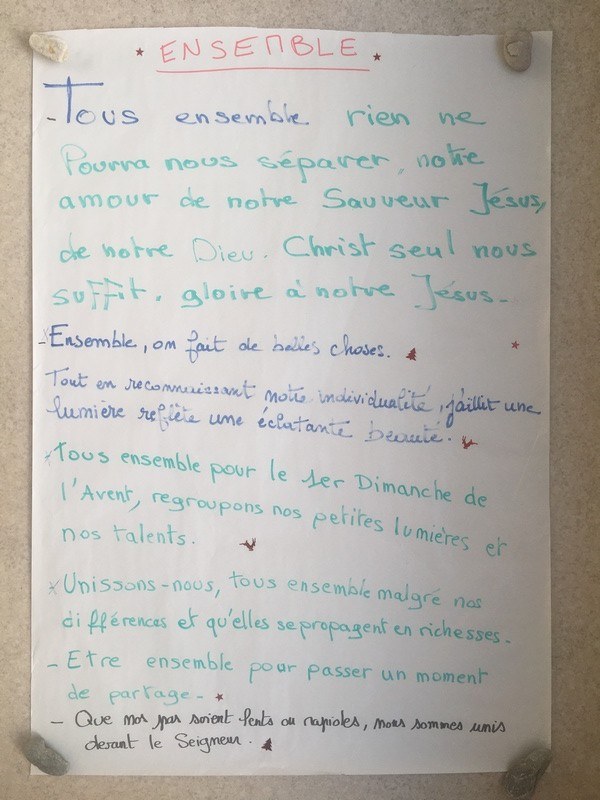 ENSEMBLE
- Tous ensemble rien ne
Pourra nous séparer, notre
amour de notre Sauveur Jésus,
de notre Dieu. Christ seul nous
suffit. gloire à notre Jésus.
- Ensemble, on fait de belles choses.
Tout en reconnaissant notre individualité, jaillit une
lumière reflète une éclatante beauté.
Tous ensemble pour le 1er Dimanche de
l'Avent, regroupons nos petites lumières et
nos talents.
Unissons-nous, tous ensemble malgré nos
différences et qu'elles se propagent en richesses.
- Etre ensemble pour passer un moment
de partage -
- Que nos pas soient lents ou rapides, nous sommes unis
devant le Seigneur.